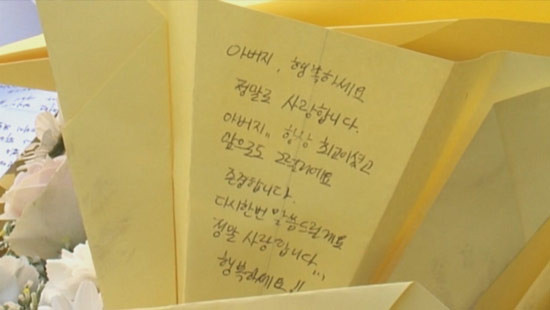 아버지, 행복하세요
정말로 사랑합니다.
아버지, 항상 최고이셨고
앞으로도 그럴거예요
존경합니다.
다시한번 말씀드릴게요
정말 사랑합니다...
행복하세요!!